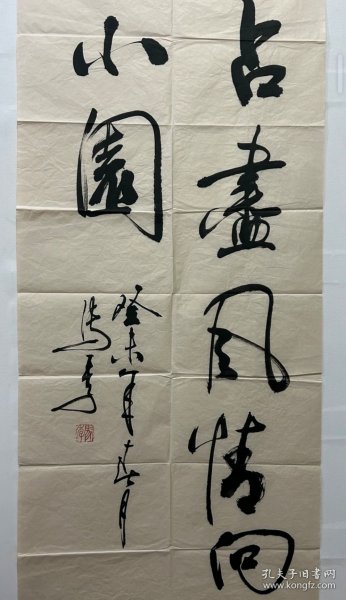 占盡风情向
小園
癸未年春月
孔夫子旧书网
www.kongfz.com